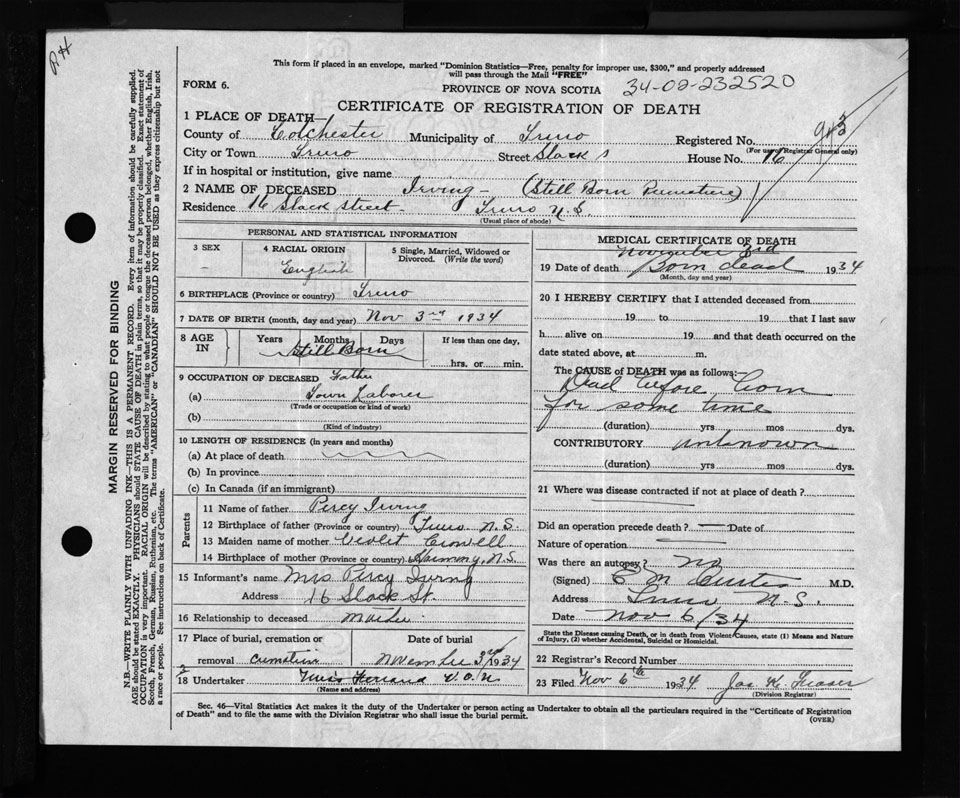 R H
This form if placed in an envelope, marked "Dominion Statistics—Free, penalty for improper use, $300," and properly addressed
will pass through the Mail "FREE"
FORM 6.
PROVINCE OF NOVA SCOTIA 34-02-232520
CERTIFICATE OF REGISTRATION OF DEATH
1 PLACE OF DEATH—
County of Colchester Municipality of Truro Registered No. 943
(For use of Registrar General only)
City or Town Truro Street Slack House No. 16
If in hospital or institution, give name
2 NAME OF DECEASED Irving - (Still Born Premature)
Residence 16 Slack Street - Truro N.S.
(Usual place of abode)
PERSONAL AND STATISTICAL INFORMATION
3 SEX
-
4 RACIAL ORIGIN
English
5 Single, Married, Widowed or
Divorced. (Write the word)
6 BIRTHPLACE (Province or country) Truro
7 DATE OF BIRTH (month, day and year) Nov 3rd 1934
8 AGE
IN
Years Months Days
Still Born
If less than one day,
hrs. or min.
9 OCCUPATION OF DECEASED Father
(a) Town Laborer
(Trade or occupation or kind of work)
(b)
(Kind of industry)
10 LENGTH OF RESIDENCE (in years and months)
(a) At place of death
(b) In province
(c) In Canada (if an immigrant)
Parents
11 Name of father Percy Irving
12 Birthplace of father (Province or country) Truro N.S.
13 Maiden name of mother Violet Crowell
14 Birthplace of mother (Province or country) N.S.
15 Informant's name Mrs Percy Irving
Address 16 Slack St.
16 Relationship to deceased Mother
17 Place of burial, cremation or
removal cremation
Date of burial
November 3rd 1934
18 Undertaker Miss V.O.N.
(Name and address)
MEDICAL CERTIFICATE OF DEATH
November 3rd
19 Date of death Born dead 1934
(Month, day and year)
20 I HEREBY CERTIFY that I attended deceased from
19 to 19 that I last saw
h alive on 19 and that death occurred on the
date stated above, at m.
The CAUSE of DEATH was as follows:
Dead before born
for some time
(duration) yrs mos dys.
CONTRIBUTORY unknown
(duration) yrs mos dys.
21 Where was disease contracted if not at place of death?
Did an operation precede death? — Date of
Nature of operation
Was there an autopsy? No
(Signed) E M Curtis M.D.
Address Truro N.S.
Date Nov 6/34
State the Disease causing Death, or in death from Violent Causes, state (1) Means and Nature
of Injury, (2) whether Accidental, Suicidal or Homicidal.
22 Registrar's Record Number
23 Filed Nov 6th 1934 Jas. K. Fraser
(Division Registrar)
Sec. 46—Vital Statistics Act makes it the duty of the Undertaker or person acting as Undertaker to obtain all the particulars required in the "Certificate of Registration
of Death" and to file the same with the Division Registrar who shall issue the burial permit.
(OVER)
MARGIN RESERVED FOR BINDING
N.B.—WRITE PLAINLY WITH UNFADING INK—THIS IS A PERMANENT RECORD. Every item of information should be carefully supplied.
AGE should be stated EXACTLY. PHYSICIANS should STATE CAUSE OF DEATH in plain terms, so that it may be properly classified. Exact statement of
OCCUPATION is very important. RACIAL ORIGIN will be described by stating to what people or tongue the deceased person belonged, whether English, Irish,
Scotch, French, German, Russian, Ruthenian, etc. The terms "AMERICAN" or "CANADIAN" SHOULD NOT BE USED as they express citizenship but not
a race or people. See instructions on back of Certificate.